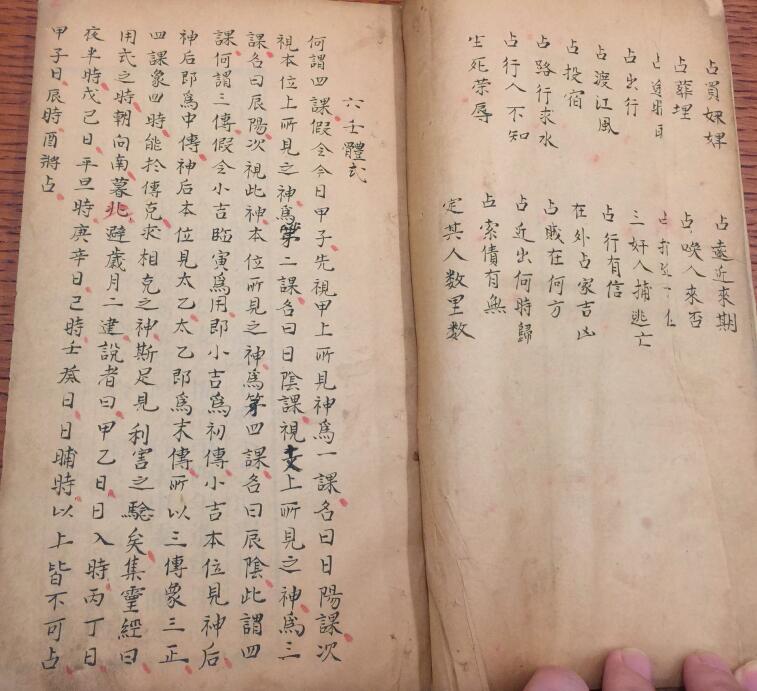 占買奴婢
占葬埋
占出行
占渡江風
占投宿
占路行求水
占行人不知
生死荣辱
占遠近來期
占喚人來否
三奸人捕逃亡
占行有信
在外占家吉凶
占賊在何方
占近出何時歸
占索債有無
定其人数里数
六壬體式
何謂四課假令今日甲子先視甲上所見神爲一課名曰日陽課次
視本位上所見之神爲第二課名曰日陰課視支上所見之神爲三
課名曰辰陽次視此神本位所見之神爲第四課名曰辰陰此謂四
課何謂三傳假令小吉臨寅爲用即小吉爲初傳小吉本位見神后
神后即爲中傳神后本位見太乙太乙即爲末傳所以三傳象三正
四課象四時能於傳克求相克之神斯足見利害之騐矣集靈經曰
用式之時朝向南暮北避歲月二建說者曰甲乙日日入時丙丁日
夜半時戊己日平旦時庚辛日已時壬癸日日晡時以上皆不可占
甲子日辰時酉將占